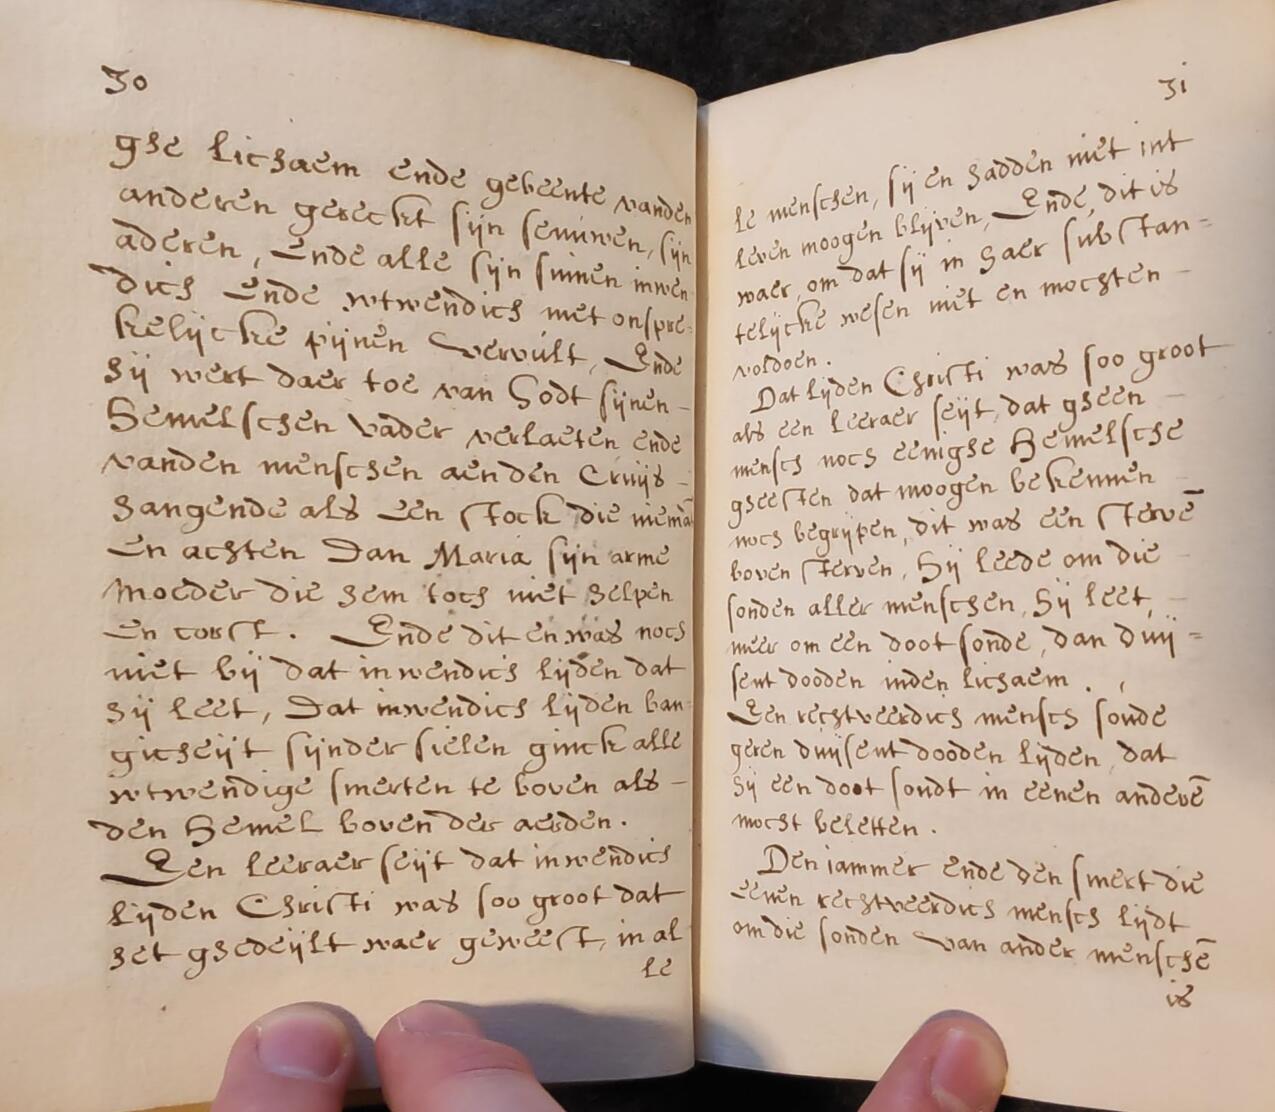 30
ghe lichaem ende gebeente vanden
anderen gereckt sijn senuwen, sijn
aderen, Ende alle sijn sinnen inwen
dich Ende wtwendich met onspre-
kelijcke pijnen vervult, Ende
hij wert daer toe van Godt sijnen -
Hemelschen vader verlaeten ende
vanden menschen aenden Cruijs -
hangende als Een stock die niemā
En achten Dan Maria sijn arme
Moeder die hem toch niet helpen
En const. Ende dit en was noch
niet bij dat inwendich lijden dat
hij leet, Dat inwendich lijden ban-
gicheijt sijnder sielen ginck alle
wtwendige smerten te boven als -
den Hemel boven der aerden.
Een leeraer seijt dat inwendich
lijden Christi was soo groot dat
het ghedeijlt waer geweest, in al
le
31
le menschen, sij en hadden niet int
leven moogen blijven, Ende, dit is
waer, om dat sij in haer substan=
telijcke wesen niet en mochten -
voldoen.
Dat lijden Christi was soo groot
als een leeraer seijt, dat gheen -
mensch noch eenighe Hemelsche
gheesten dat moogen bekennen -
noch begrijpen, dit was een stervē
boven sterven, Hij leede om die -
sonden aller menschen, Hij leet, -
meer om een doot sonde, dan duij=
sent dooden inden lichaem.
Een rechtveerdich mensch sonde
geren duijsent dooden lijden, dat
hij een doot sondt in eenen anderē
mocht beletten.
Den iammer Ende den smert die
eenen rechtveerdich mensch lijdt
om die sonden van ander menschē
is